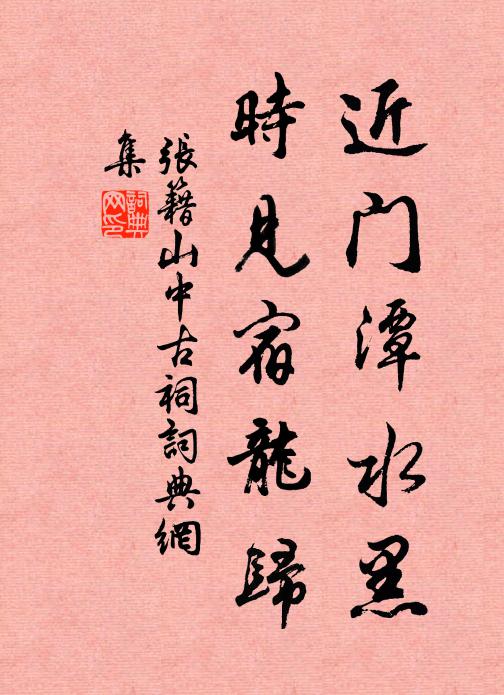 近门潭水黑
時見宿龍歸
張籍山中古祠詞典網
集
詞典
网印